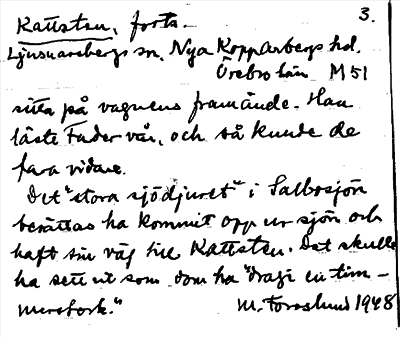 Kattsten, forts. 3.
Ljusnarsbergs sn. Nya Kopparbergs hd.
Örebro län M 51
sitta på vagnens framände. Han
läste Fader vår, och så kunde de
fara vidare.
Det "stora sjödjuret" i Salbosjön
berättas ha kommit opp ur sjön och
haft sin väg till Kattsten. Det skulle
ha sett ut som dom ha "dragi en tim-
merstock."
M. Forsslund 1948